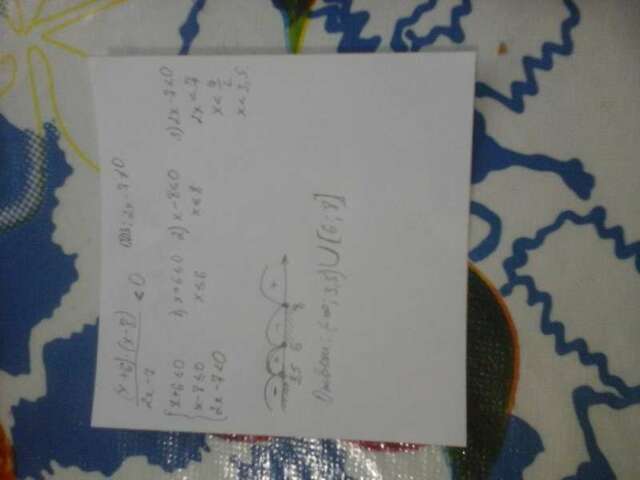 (x+6)·(x-8) / 2x-7 ≤ 0 ОДЗ: 2x-7≠0
{ x+6≤0
x-8≤0
2x-7<0
1) x+6≤0
x≤6
2) x-8≤0
x≤8
3) 2x-7<0
2x<7
x<
x<3,5
- + - +
3,5 6 8
Ответ: (-∞; 3,5) ∪ [6; 8]